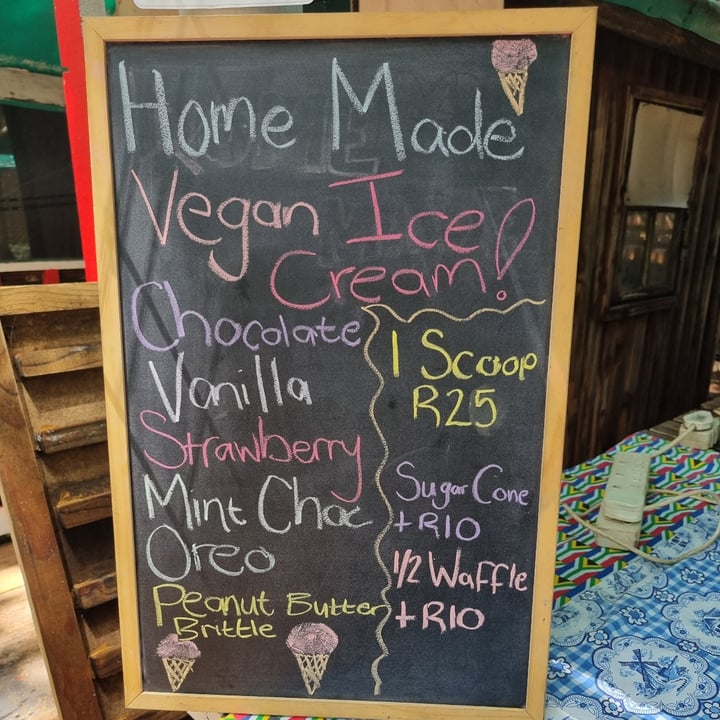 Home Made
Vegan Ice
Cream!
Chocolate
Vanilla
Strawberry
Mint Choc
Oreo
Peanut Butter
Brittle
1 Scoop
R25
Sugar Cone
+R10
1/2 Waffle
+R10